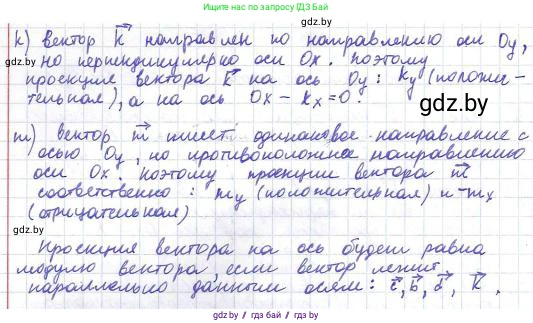 Учись на отлично вместе с нами
ответы по запросу ГДЗ Бай
gdz.by
k) вектор k направлен по направлению оси Oy,
но перпендикулярно оси Ox. Поэтому
проекция вектора k на ось Oy: ky (положи-
тельная), а на ось Ox – kx = 0.
gdz.by
m) вектор m имеет одинаковое направление с
осью Oy, но противоположна направлению
оси Ox. Поэтому проекции вектора m
соответственно: my (положительная) и -mx
(отрицательная)
gdz.by
Проекция вектора на ось будет равна
модулю вектора, если вектор лежит
параллельно данным осям: c, b, d, k.
gdz.by
gdz.by / гдз бай / gdz.by